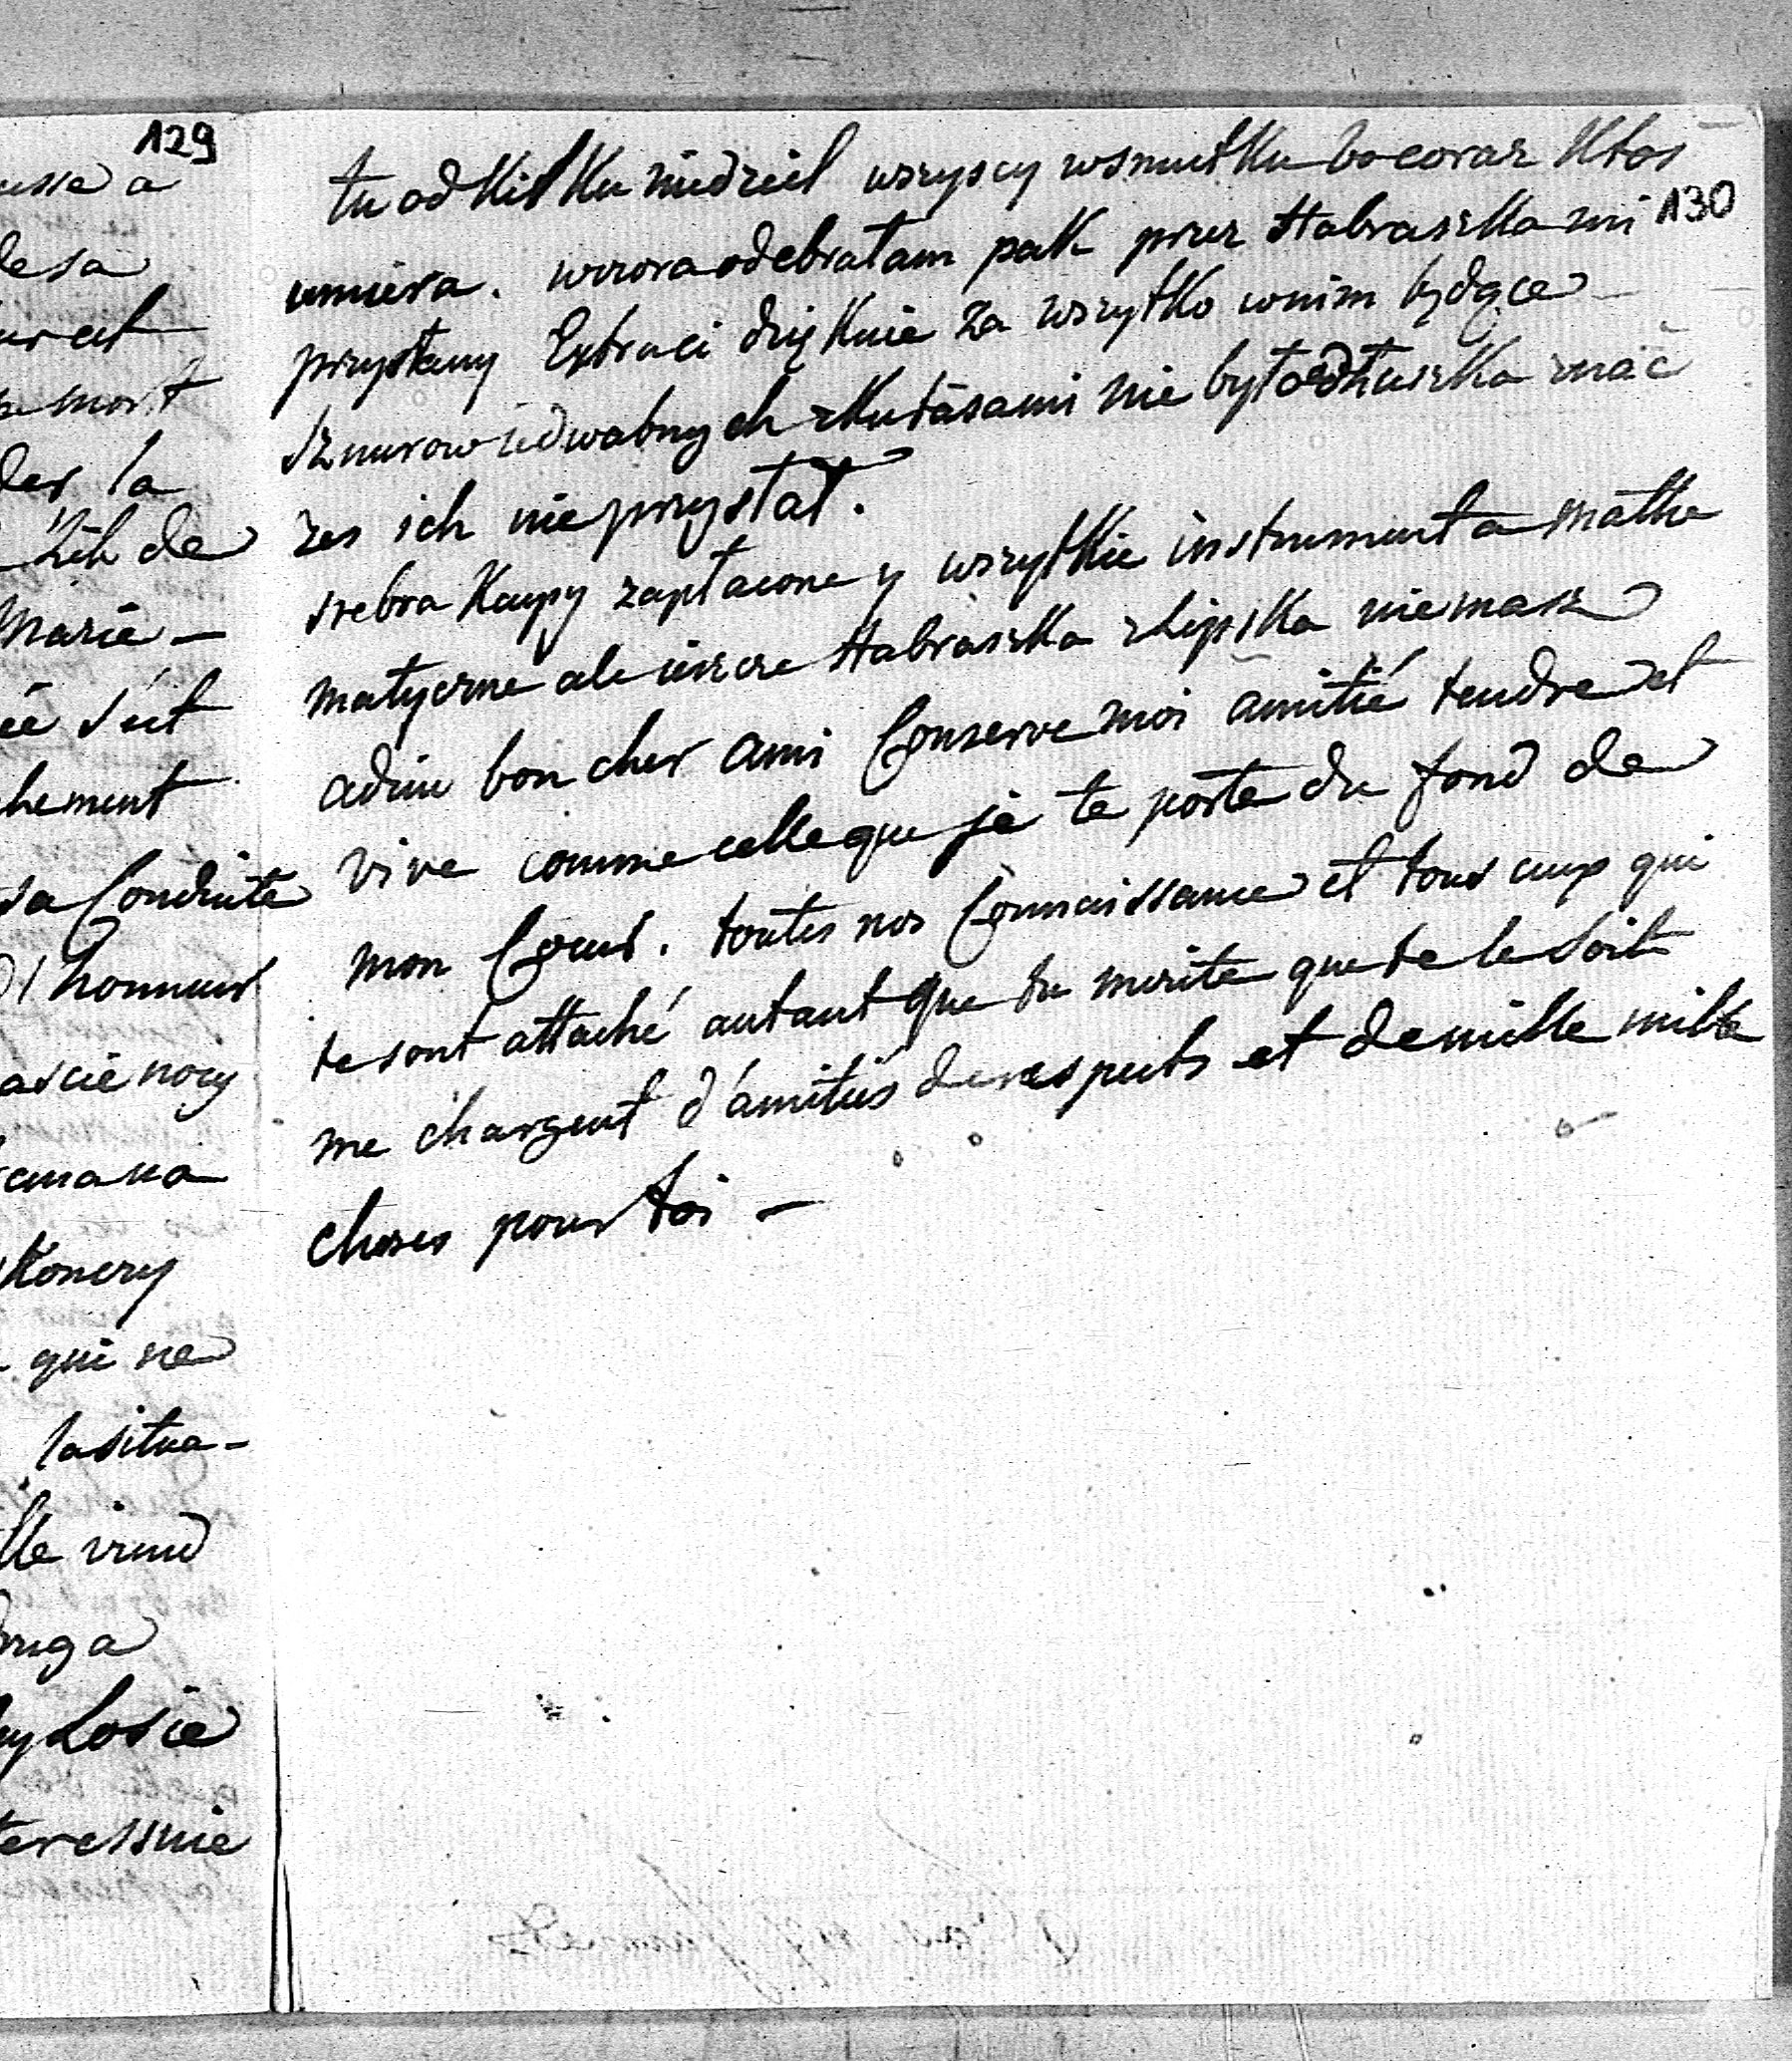 129
usse a
de sa
mort
der la
de
Marie –
s'est
chement
sa Conduite
l'honneur
ascie nocy
qui ne
la situa-
lle
druga
Losie
teressuie
130
tu od kilku niedziel wszyscy wsmutku bo coraz ktos
umiera. wczora odebrałam pak przez Habraszka mi
przysłany Extra ci dziękuie za wszytko wnim będące
sznurow iedwabnych zkutasami nie było Dłuszka znać
zes ich nie przysłał.
srebra Kupy zapłacone y wszytkie instrumenta mathe
matyczne ale ieszcze Habraszka zLipska niemasz
adieu bon cher ami Conserve moi amitié tendre et
vive comme celle que je te porte du fond de
mon Coeur. toutes nos Connaissance et tous ceux qui
te sont attaché autant que tu merite que te le soit
me chargent d'amitiés de respects et de mille mille
choses pour toi –